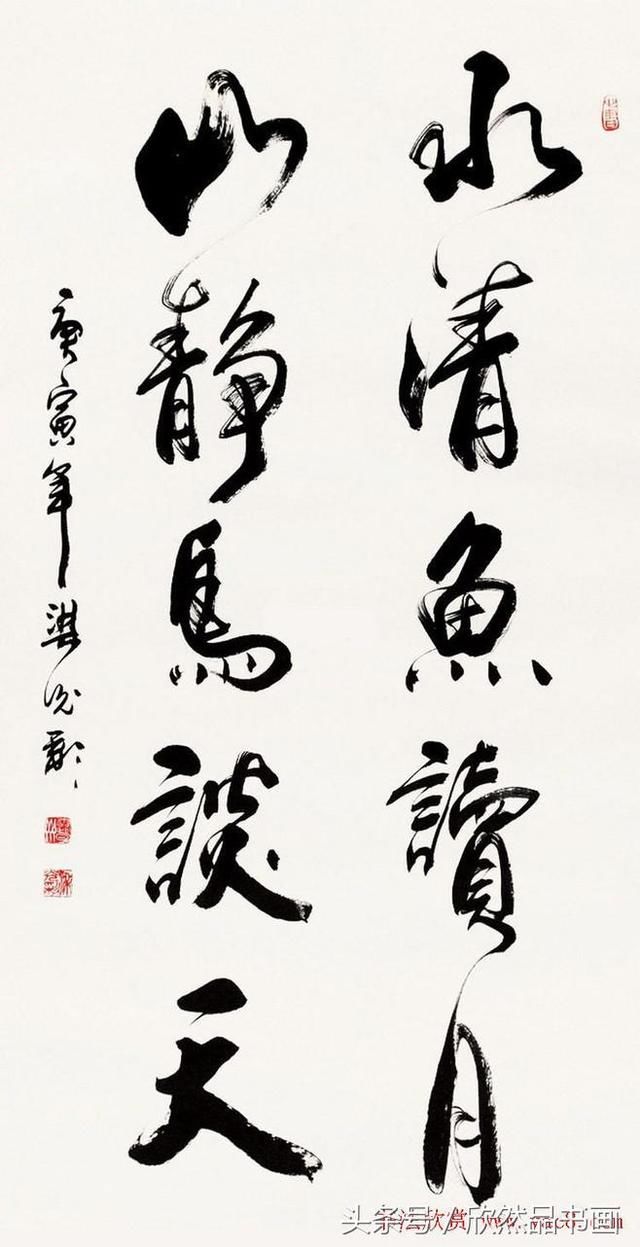 水清魚讀月
山靜鳥談天
庚寅年
头条号/欣然品书画